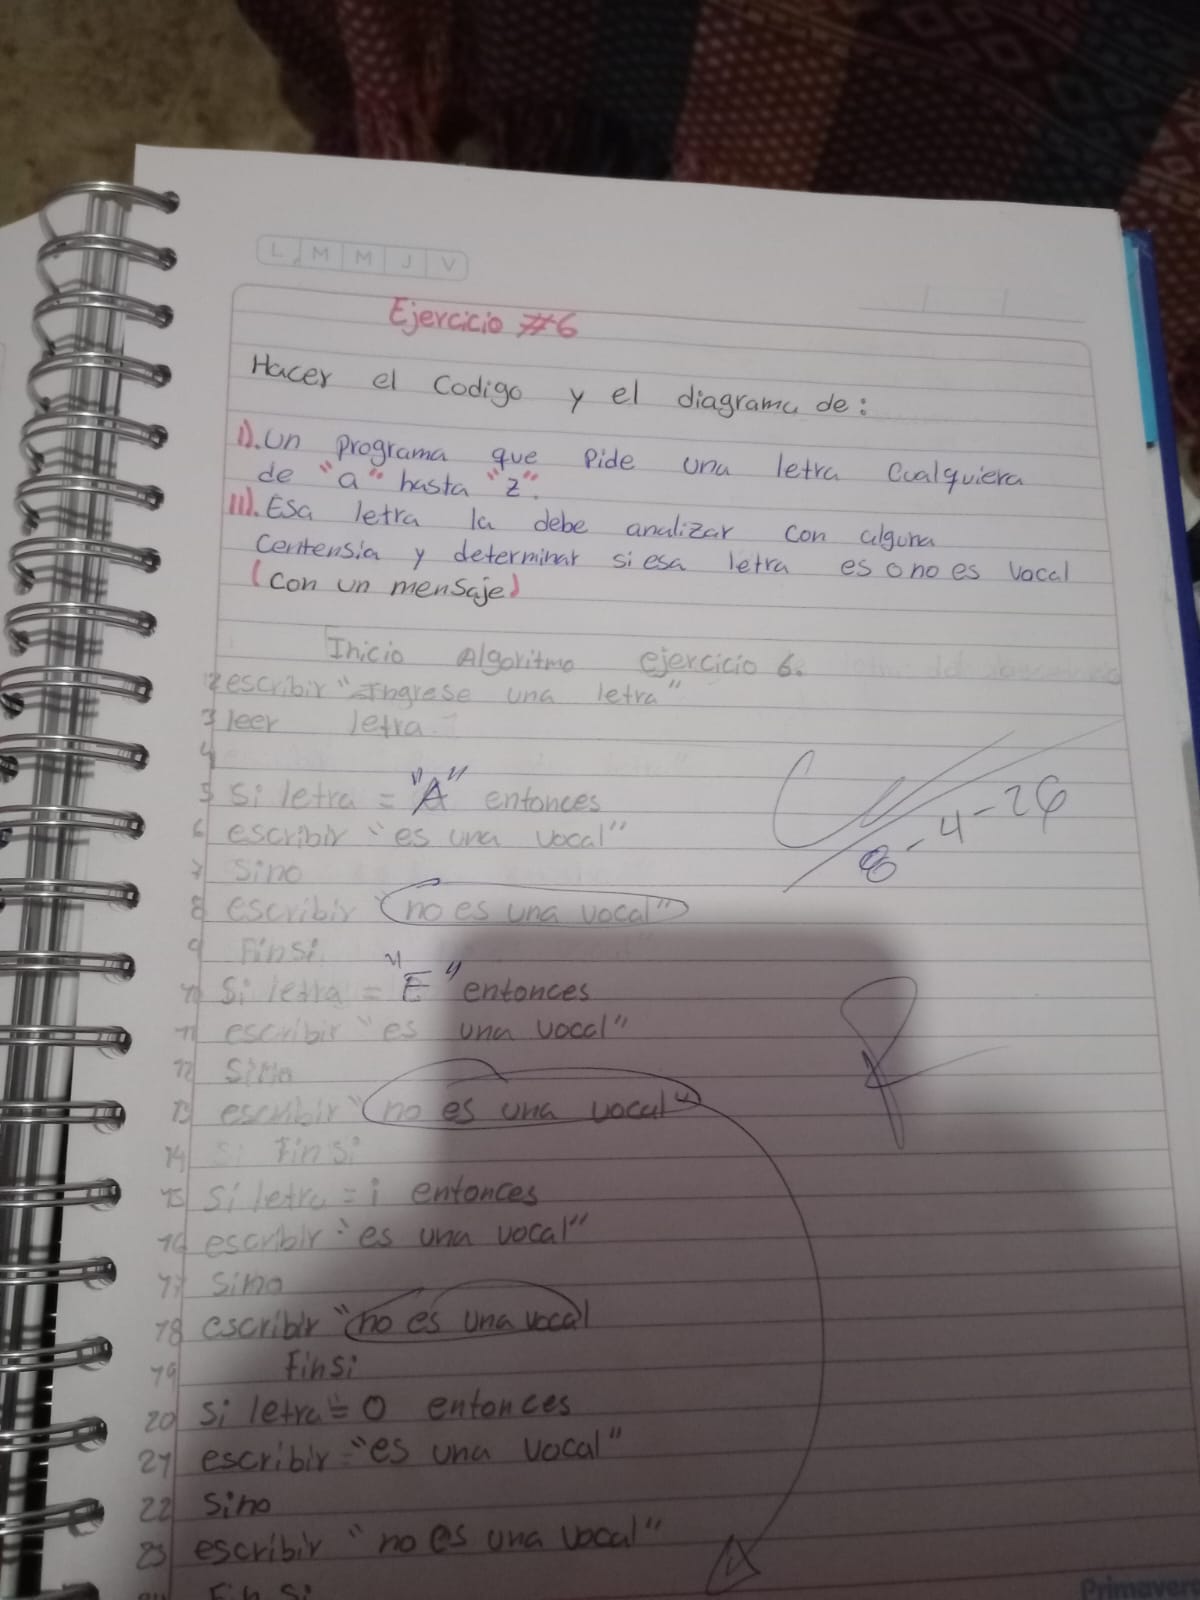 L M M J V
Ejercicio #6
Hacer el Codigo y el diagrama de:
I). Un programa que Pide una letra Cualquiera
de "a" hasta "z".
II). Esa letra la debe analizar con alguna
Centensia y determinar si esa letra es o no es vocal
(con un mensaje)
Inicio Algoritmo ejercicio 6.
2 escribir "Ingrese una letra"
3 leer letra
4
5 Si letra = "A" entonces
6 escribir "es una vocal"
7 Sino
8 escribir "no es una vocal"
8-4-26
9 Finsi
10 Si letra = "E" entonces
11 escribir "es una vocal"
12 Sino
13 escribir "no es una vocal"
14 Finsi
15 Si letra = i entonces
16 escribir "es una vocal"
17 Sino
18 escribir "no es una vocal
19 Finsi
20 si letra = O entonces
21 escribir "es una vocal"
22 Sino
23 escribir "no es una vocal"
Fin Si
Primavera